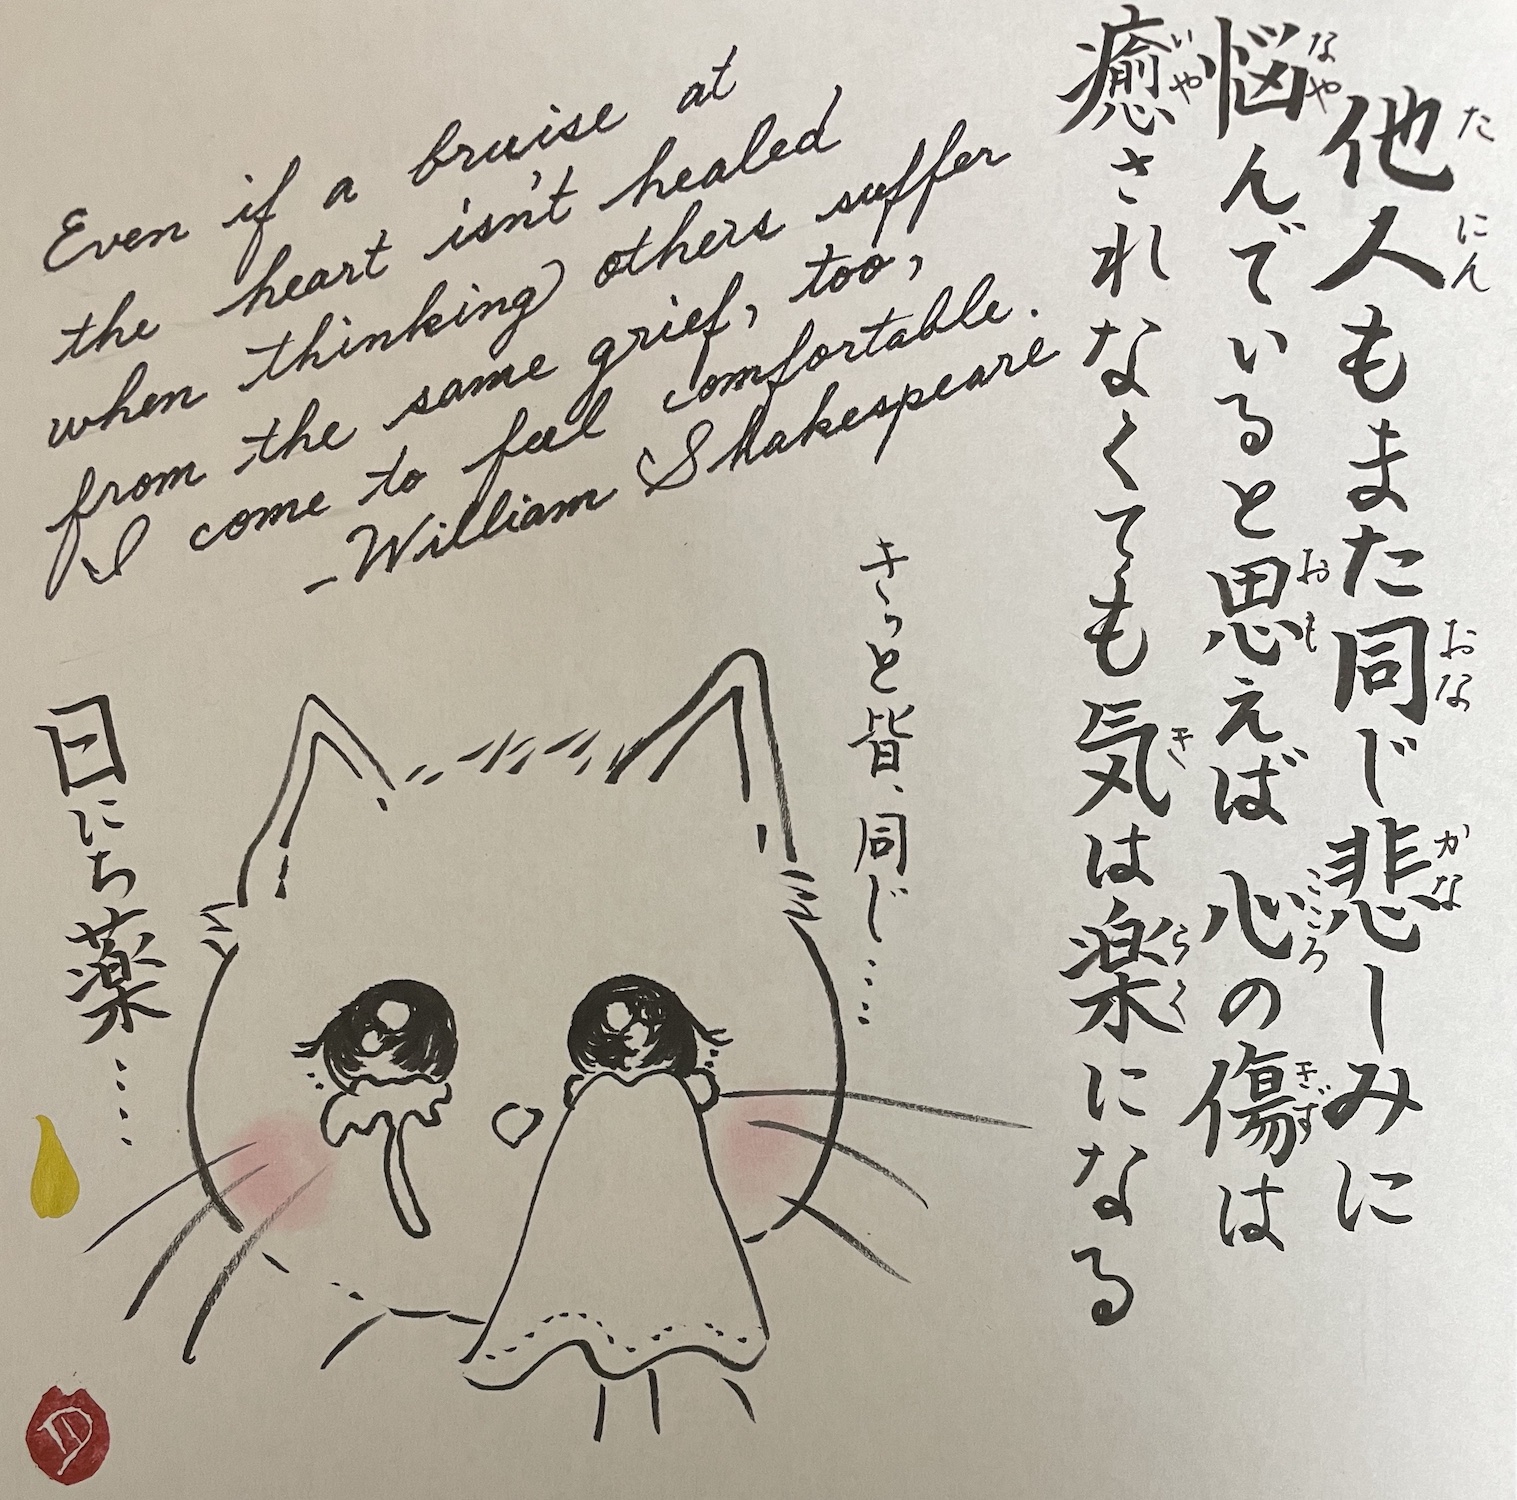 他人もまた同じ悲しみに
悩んでいると思えば 心の傷は
癒されなくても気は楽になる
たにん
おな
かな
なや
おも
こころ
きず
いや
き
らく
Even if a bruise at
the heart isn't healed
when thinking others suffer
from the same grief, too,
I come to feel comfortable.
-William Shakespeare
きっと皆、同じ……
日にち薬……